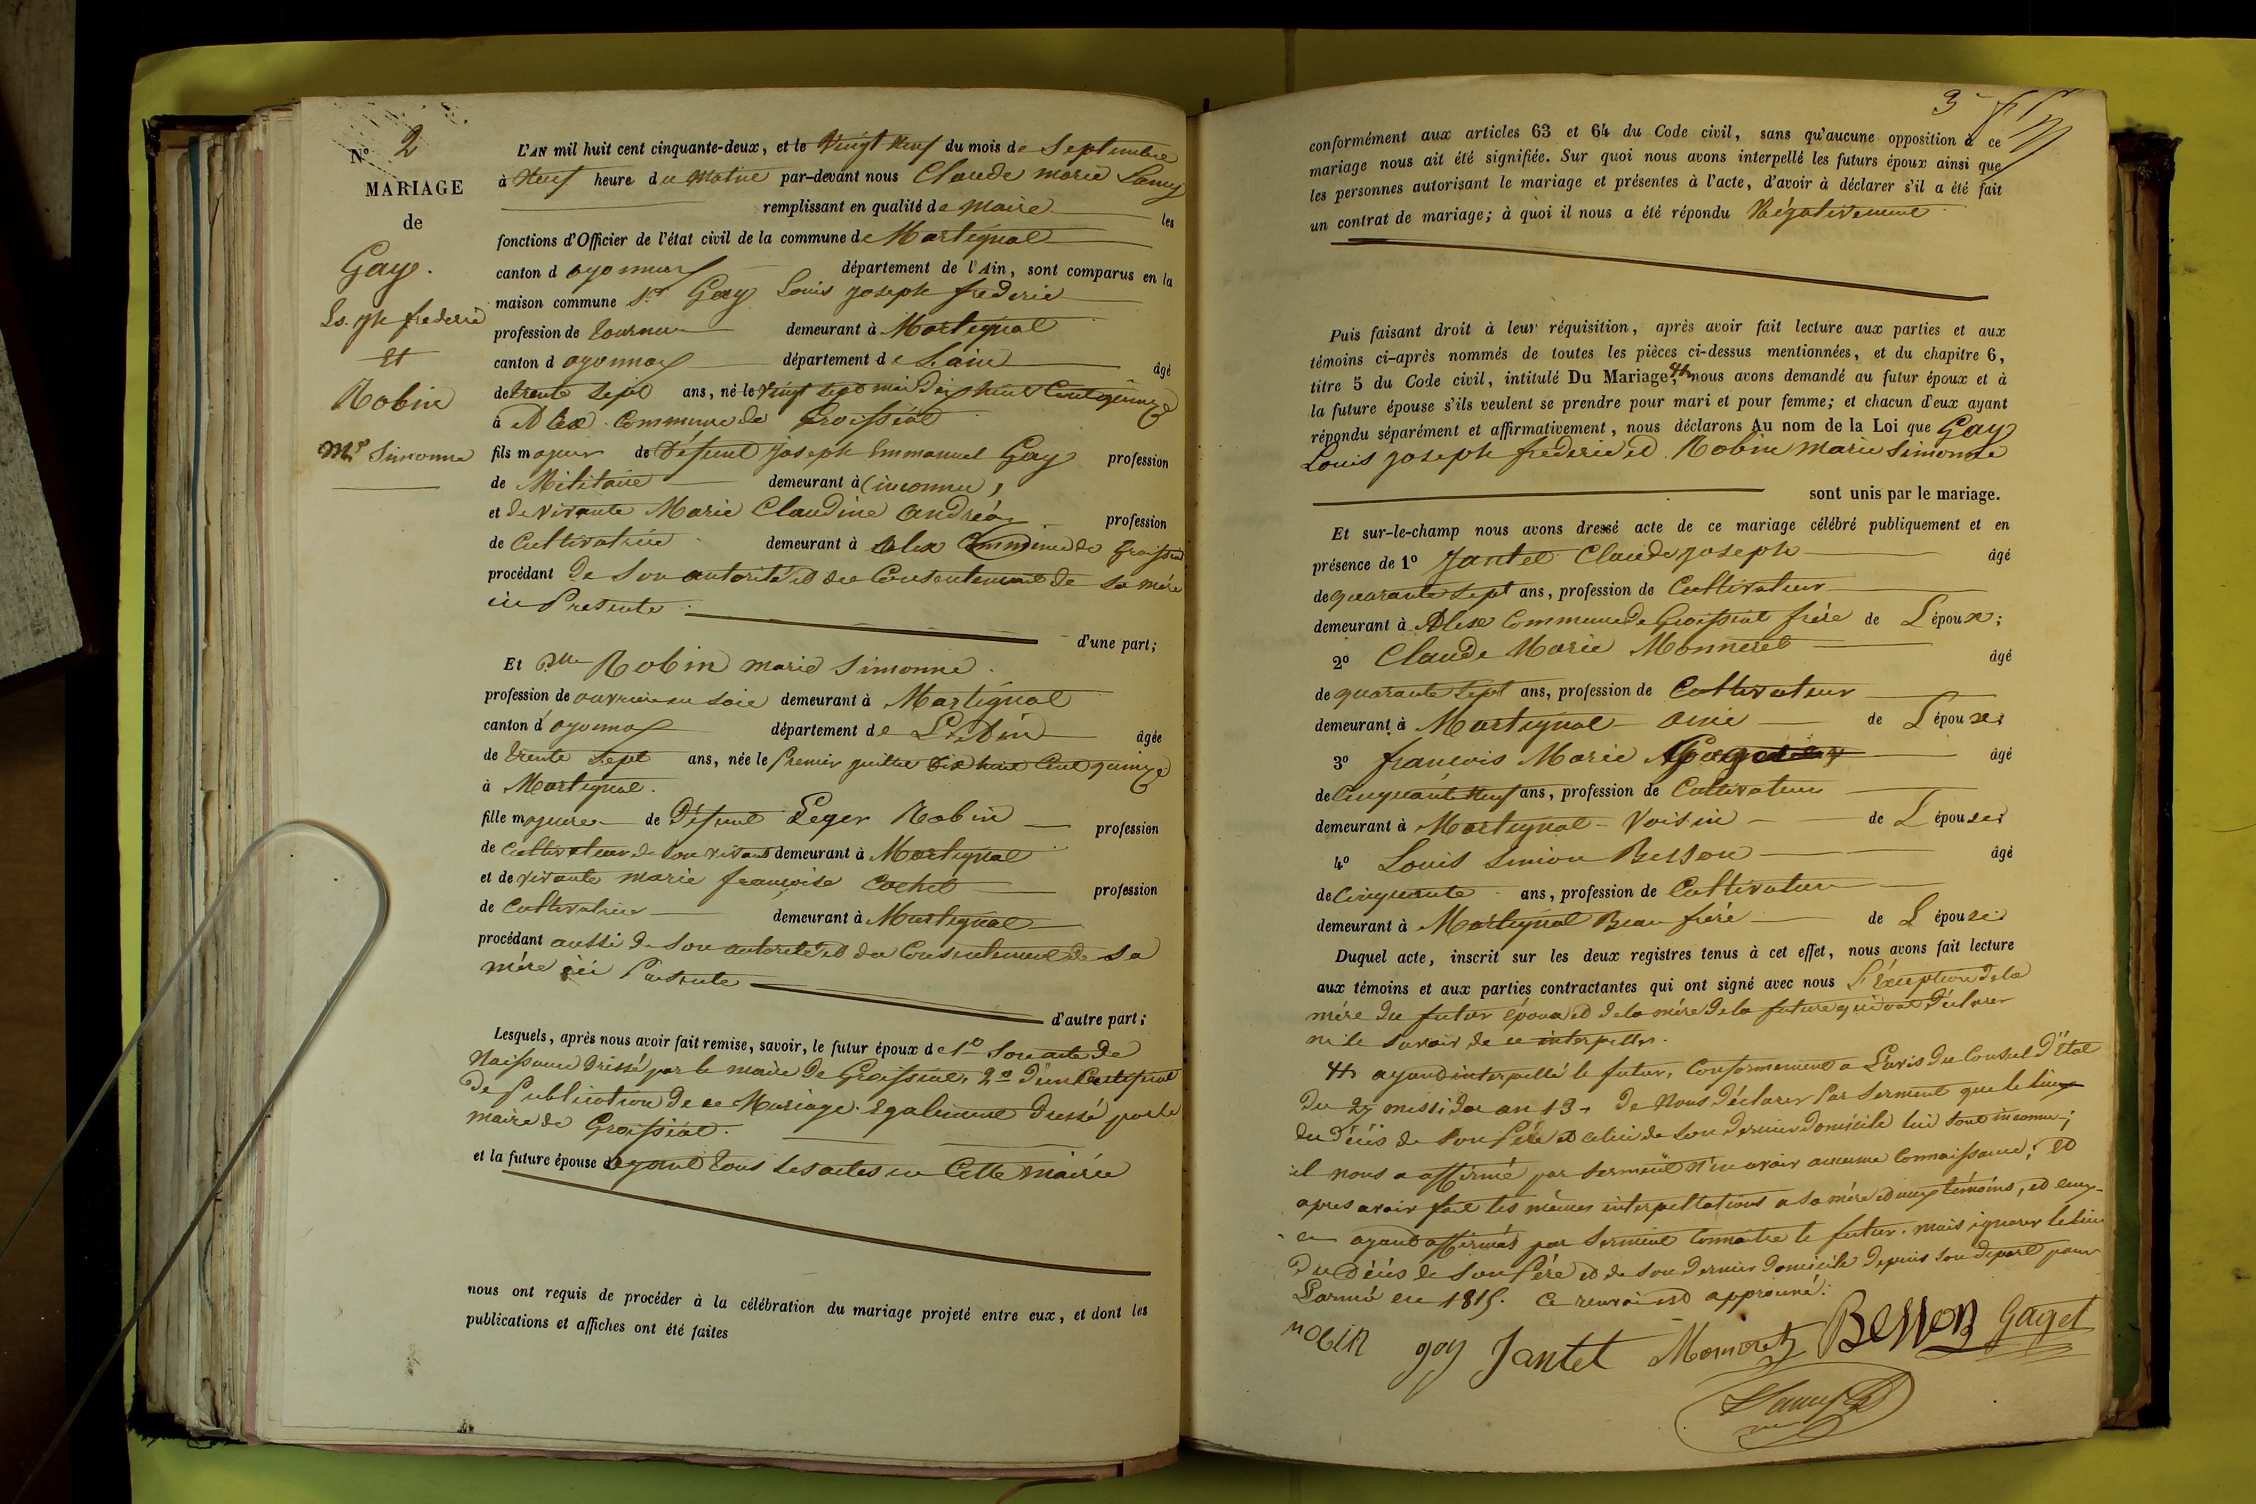 N° 2
MARIAGE
de
Gay.
Ls. Jph frederic
et
Robin
Mie Simonne
L'AN mil huit cent cinquante-deux, et le Vingt neuf du mois de Septembre
à Neuf heure du matin par-devant nous Claude marie
remplissant en qualité de Maire les
fonctions d'Officier de l'état civil de la commune de Martignat
canton d oyonnax département de l'Ain, sont comparus en la
maison commune Sr Gay Louis joseph frederic
profession de tourneur demeurant à Martignat
canton d oyonnax département de L'ain âgé
de trente sept ans, né le vingt sept mai dix huit Cent quinze
à Alex Commune de Groissiat
fils majeur de Défunt joseph Emmanuel Gay profession
de Militaire demeurant à (inconnu)
et de vivante Marie Claudine Andréa profession
de Cultivatrice demeurant à Alex Commune de Groissiat
procédant de Son autorité et du Consentement de sa mére
ici Presente. d'une part;
Et Dlle Robin marie Simonne.
profession de ouvriere en soie demeurant à Martignat
canton d'oyonnax département de L'Ain âgée
de trente Sept ans, née le Premier juillet dix huit Cent quinze
à Martignat.
fille majeure de Défunt Leger Robin profession
de Cultivateur de son vivant demeurant à Martignat
et de vivante marie françoise Cochet profession
de Cultivatrice demeurant à Martignat
procédant aussi de Son autorité et du Consentement de sa
mére ici Presente d'autre part;
Lesquels, après nous avoir fait remise, savoir, le futur époux de 1° Son acte de
Naissance dressé par le maire de Groissiat, 2° d'un Certificat
de Publication de ce Mariage Egalement dressé par le
maire de Groissiat.
et la future épouse ayant tous ses actes en Cette mairie
nous ont requis de procéder à la célébration du mariage projeté entre eux, et dont les
publications et affiches ont été faites
3
conformément aux articles 63 et 64 du Code civil, sans qu'aucune opposition à ce
mariage nous ait été signifiée. Sur quoi nous avons interpellé les futurs époux ainsi que
les personnes autorisant le mariage et présentes à l'acte, d'avoir à déclarer s'il a été fait
un contrat de mariage; à quoi il nous a été répondu Négativement
Puis faisant droit à leur réquisition, après avoir fait lecture aux parties et aux
témoins ci-après nommés de toutes les pièces ci-dessus mentionnées, et du chapitre 6,
titre 5 du Code civil, intitulé Du Mariage, nous avons demandé au futur époux et à
la future épouse s'ils veulent se prendre pour mari et pour femme; et chacun d'eux ayant
répondu séparément et affirmativement, nous déclarons Au nom de la Loi que Gay
Louis joseph frederic et Robin Marie Simonne
sont unis par le mariage.
Et sur-le-champ nous avons dressé acte de ce mariage célébré publiquement et en
présence de 1° Jantet Claude joseph âgé
de quarante sept ans, profession de Cultivateur
demeurant à Alex Commune de Groissiat frére de L'époux;
2° Claude Marie Monneret âgé
de quarante sept ans, profession de Cultivateur
demeurant à Martignat Amie de L'époux
3° françois Marie âgé
de Cinquante neuf ans, profession de Cultivateur
demeurant à Martignat Voisin de L'épouse
4° Louis Simon Besson âgé
de Cinquante ans, profession de Cultivateur
demeurant à Martignat Beau frére de L'épouse
Duquel acte, inscrit sur les deux registres tenus à cet effet, nous avons fait lecture
aux témoins et aux parties contractantes qui ont signé avec nous L'Exception de la
mère du futur époux et de la mére de la future qui ont déclarer
ne le savoir de ce interpellés.
ayant interpellé le futur, Conformement a L'avis du Conseil d'Etat
du 27 messidor an 13, de Nous déclarer Par Serment que le lieu
du Décés de Son Pére et celui de son dernier domicile lui sont inconnu;
il nous a affirmé par Serment n'en avoir aucune Connaissance; et
apres avoir fait les mêmes interpellations a Sa mére et aux témoins, et eux
en ayant affirmés par Serment Connaitre le futur, mais ignorer le lieu
du Décés de Son Pére et de Son dernier Domicile depuis Son départ pour
L'armé en 1815. Ce renvoi est approuvé.
robin gay Jantet Monneret Besson Gaget